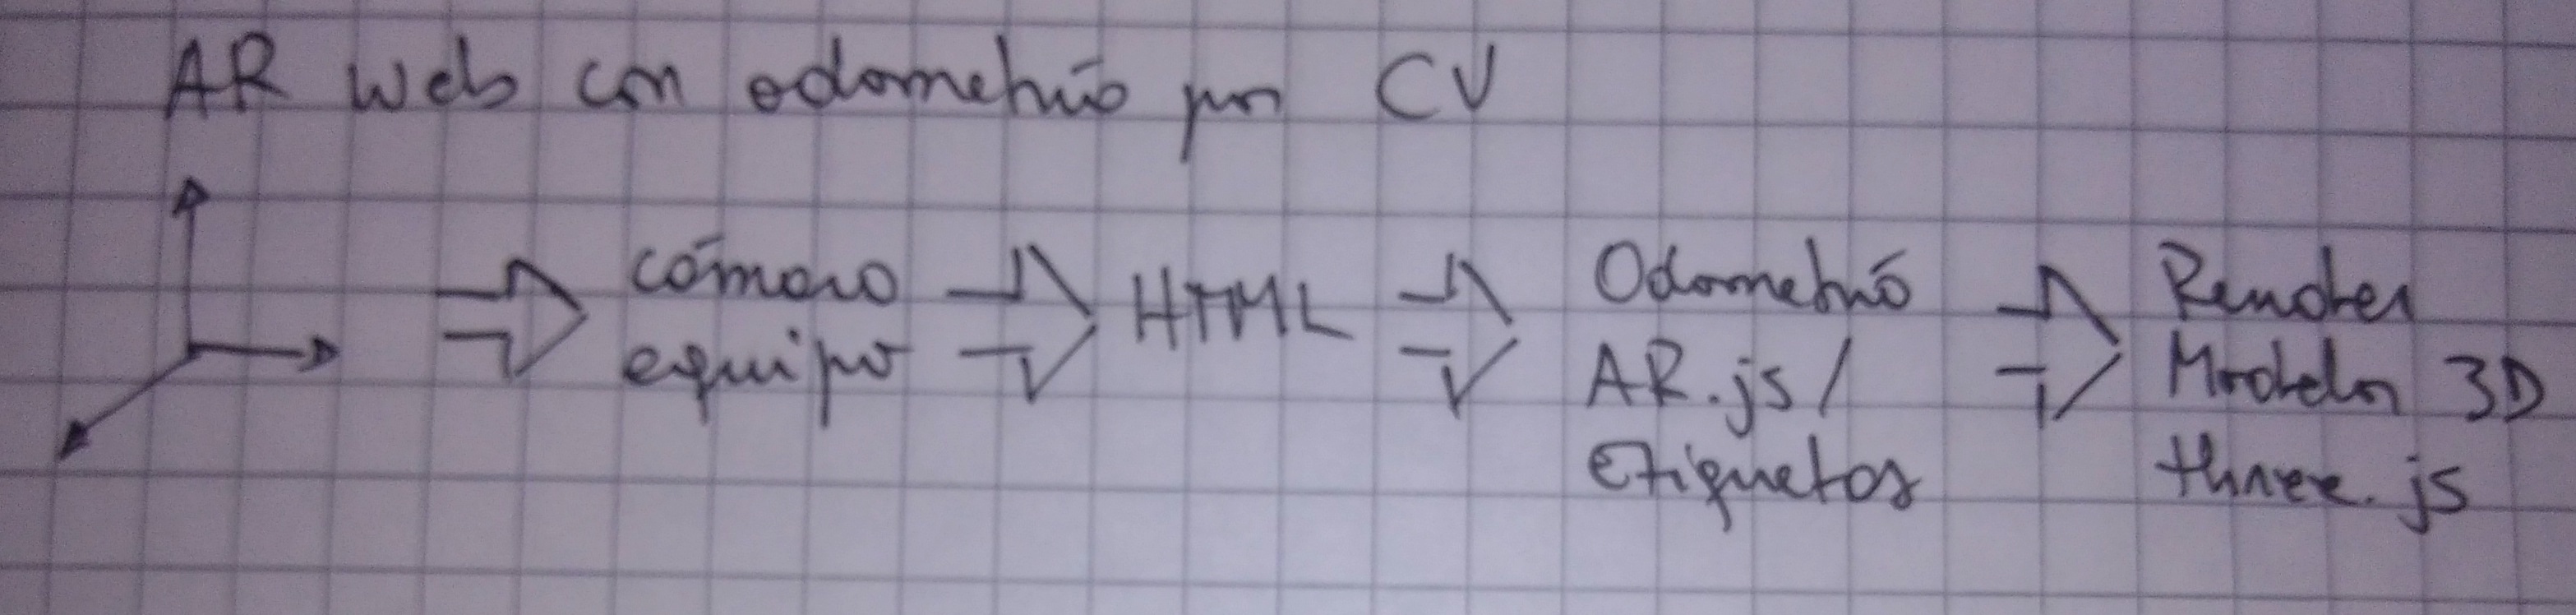 AR Web con odometría por CV
cámara
equipo
HTML
Odometría
AR.js/
Etiquetas
Render
Modelo 3D
three.js